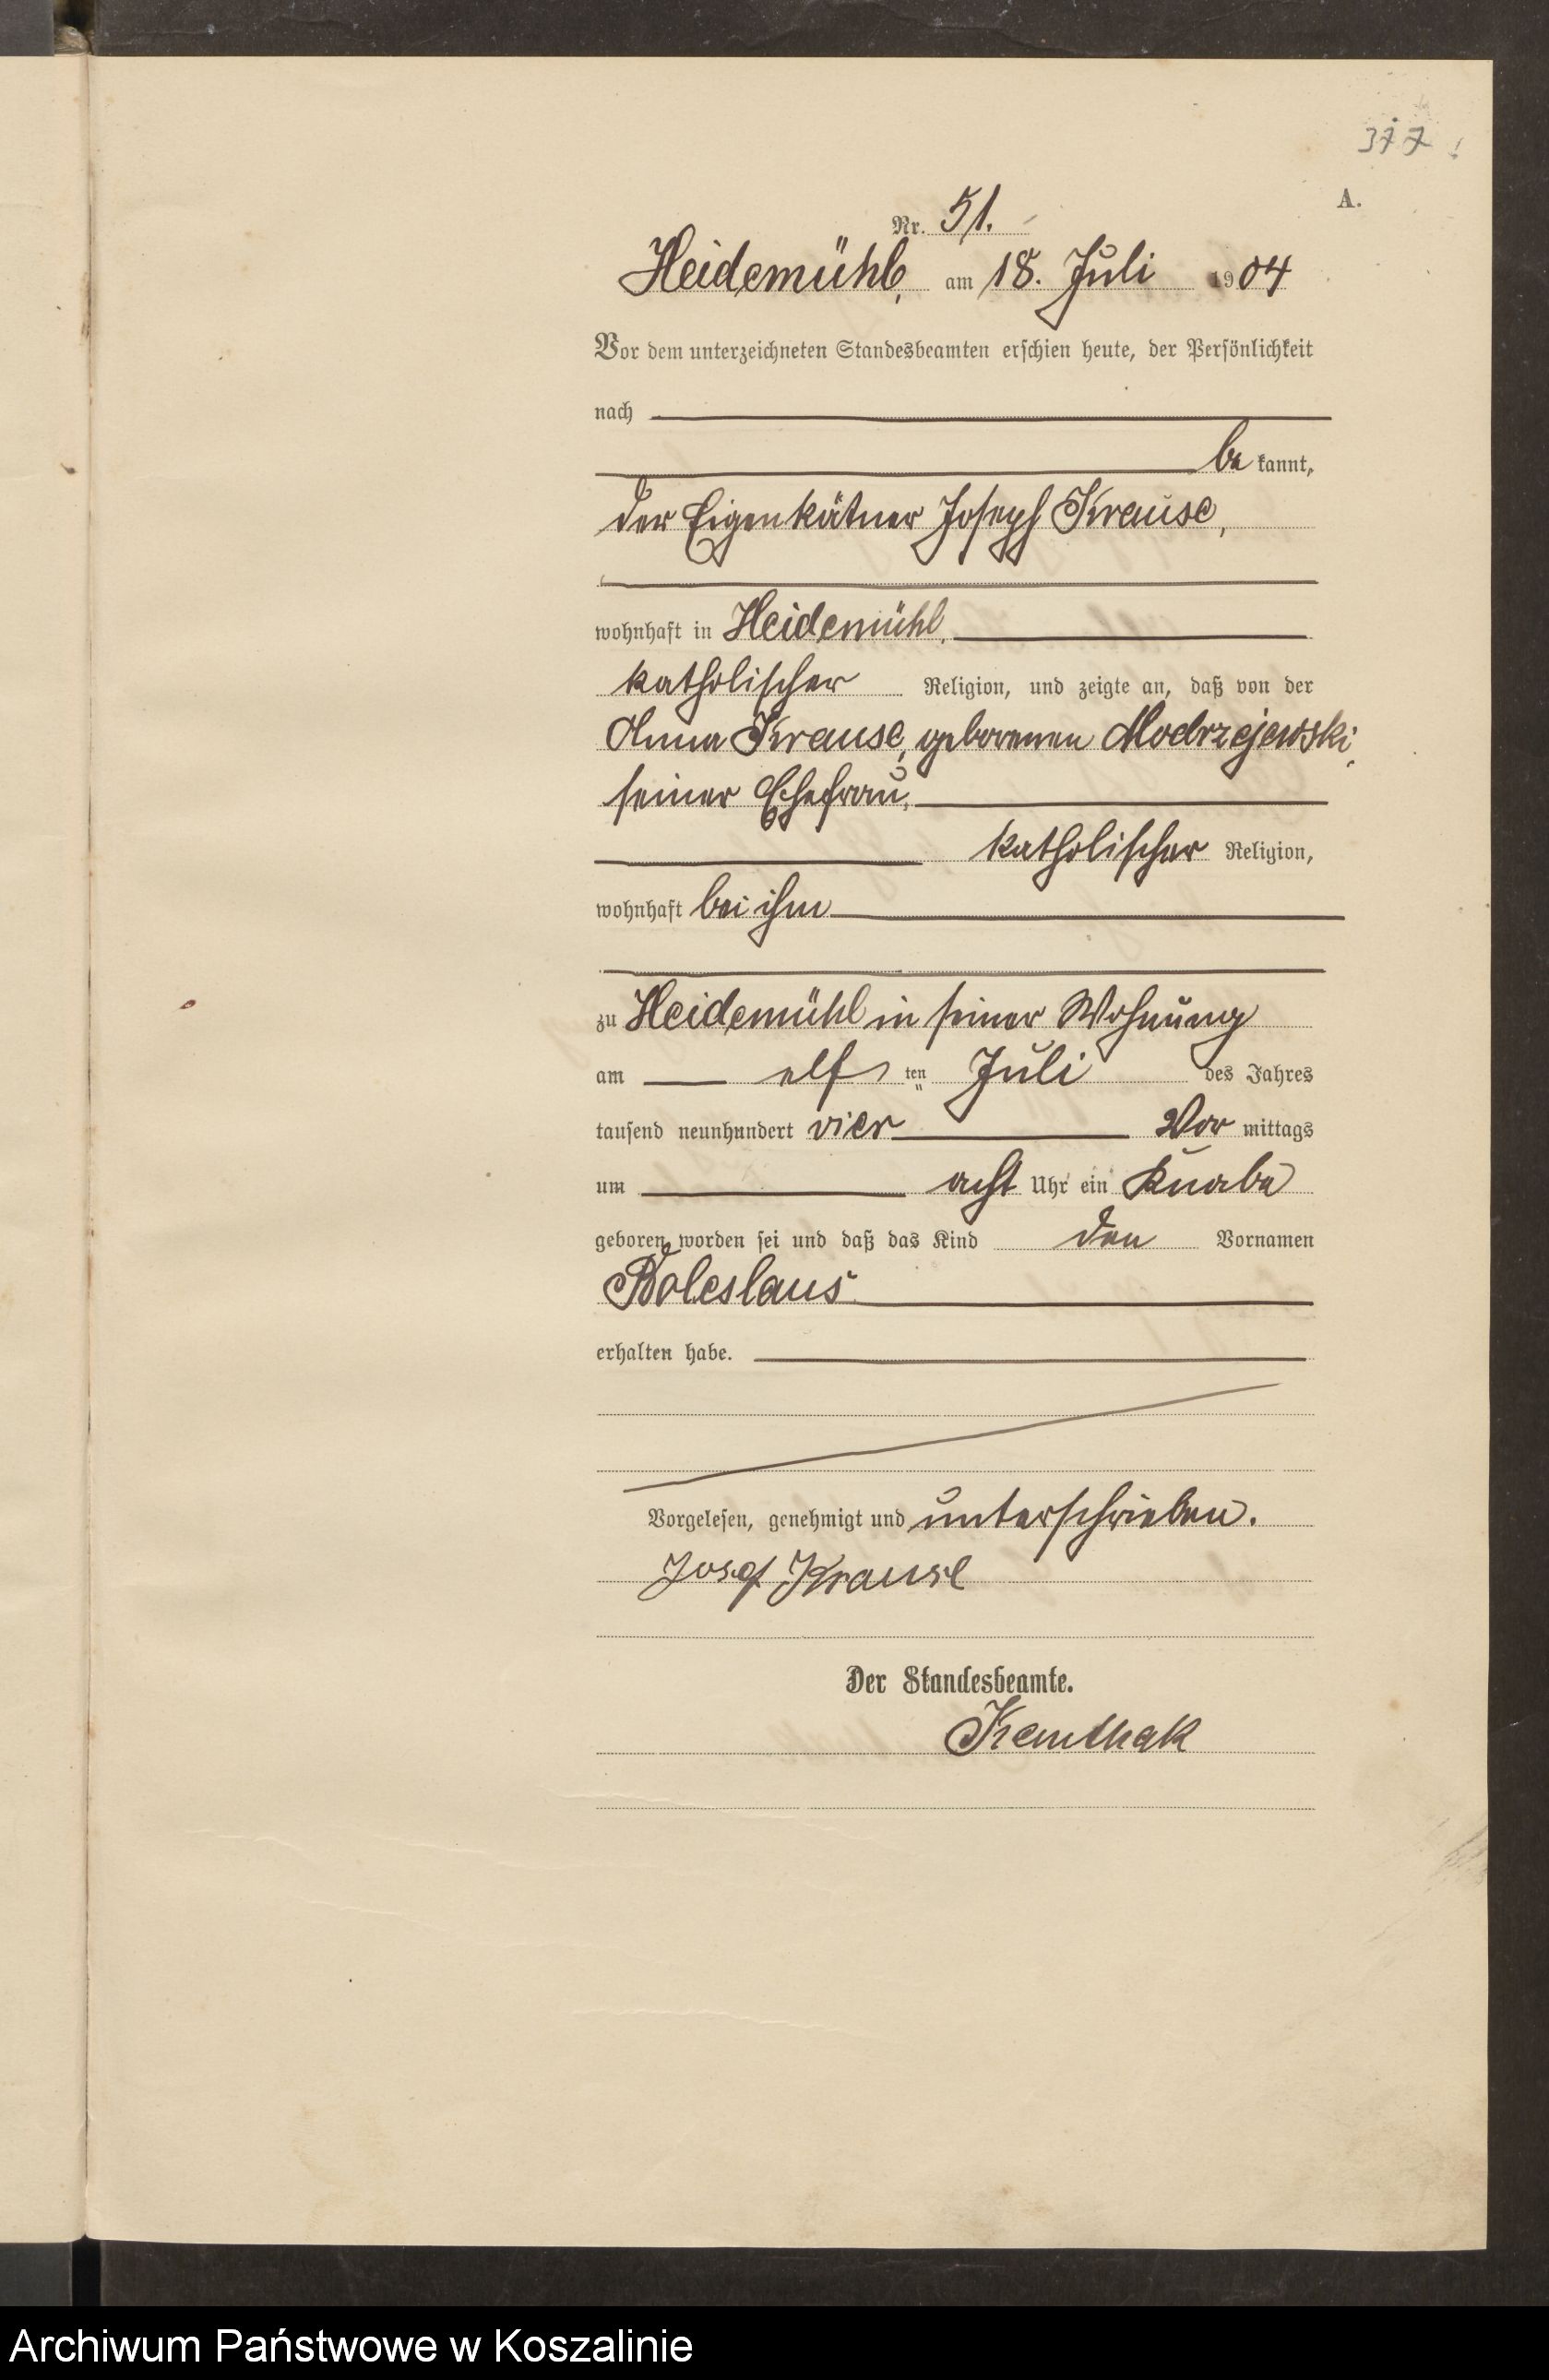 377
A.
Nr. 51.
Heidemühl, am 18. Juli 1904
Vor dem unterzeichneten Standesbeamten erschien heute, der Persönlichkeit
nach
be kannt,
der Eigenkätner Joseph Krause,
wohnhaft in Heidemühl,
katholischer Religion, und zeigte an, daß von der
Anna Krause, geborenen Modrzejewski,
seiner Ehefrau,
katholischer Religion,
wohnhaft bei ihm
zu Heidemühl in seiner Wohnung
am elf ten Juli des Jahres
tausend neunhundert vier Vor mittags
um acht Uhr ein Knabe
geboren worden sei und daß das Kind den Vornamen
Boleslaus
erhalten habe.
Vorgelesen, genehmigt und unterschrieben.
Josef Krause
Der Standesbeamte.
Archiwum Państwowe w Koszalinie